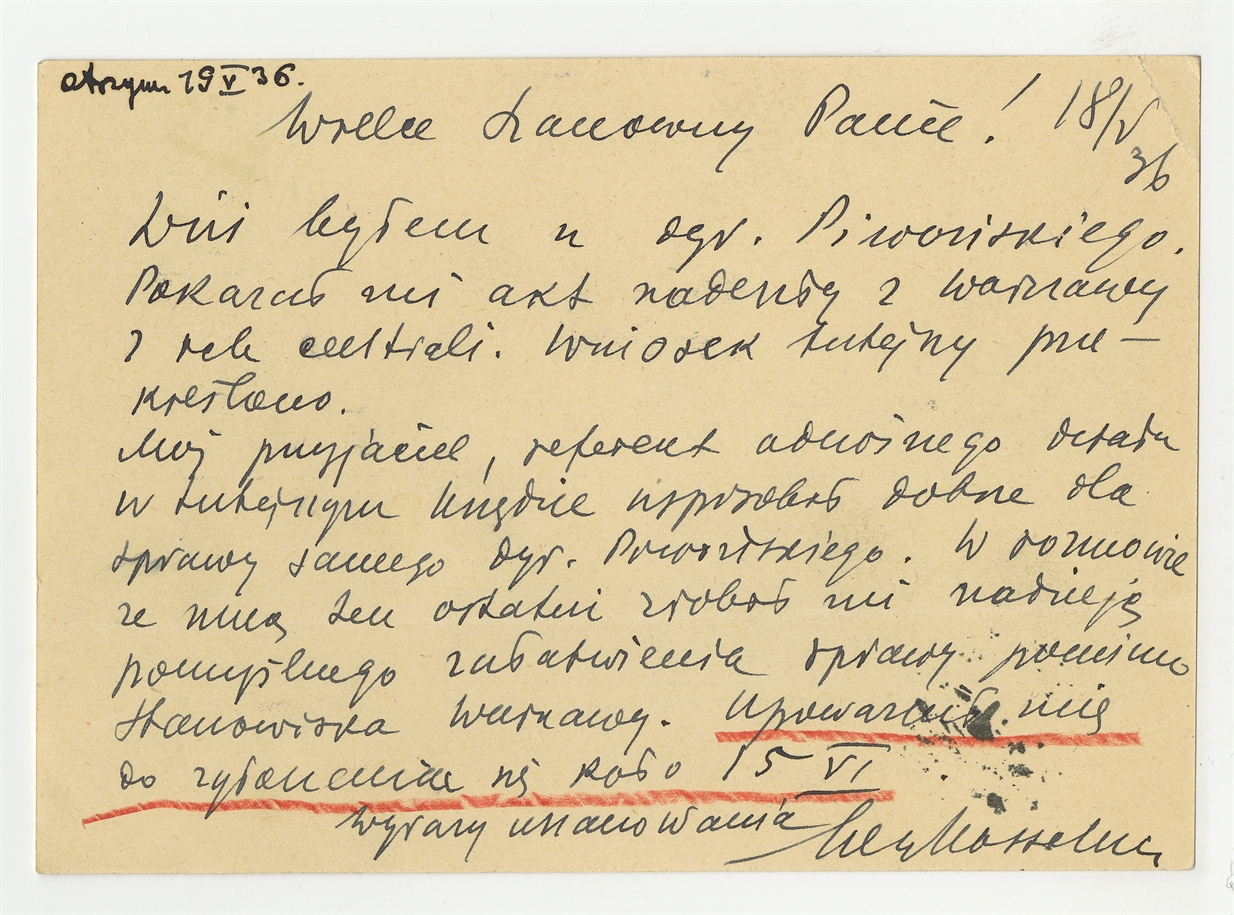 otrzym 19 V 36.
Wielce Szanowny Panie! 18/V
36
Dziś byłem u dyr. Piwońskiego.
Pokazał mi akt nadeszły z Warszawy
z tek centrali. Wniosek tutejszy prze-
kreślono.
Mój przyjaciel, referent odnośnego działu
w tutejszym Urzędzie usposobił dobrze dla
sprawy samego dyr. Piwońskiego. W rozmowie
ze mną ten ostatni zrobił mi nadzieję
pomyślnego załatwienia sprawy pomimo
stanowiska Warszawy. Upoważnił mię
do zgłoszenia się koło 15 VI.
Wyrazy uszanowania